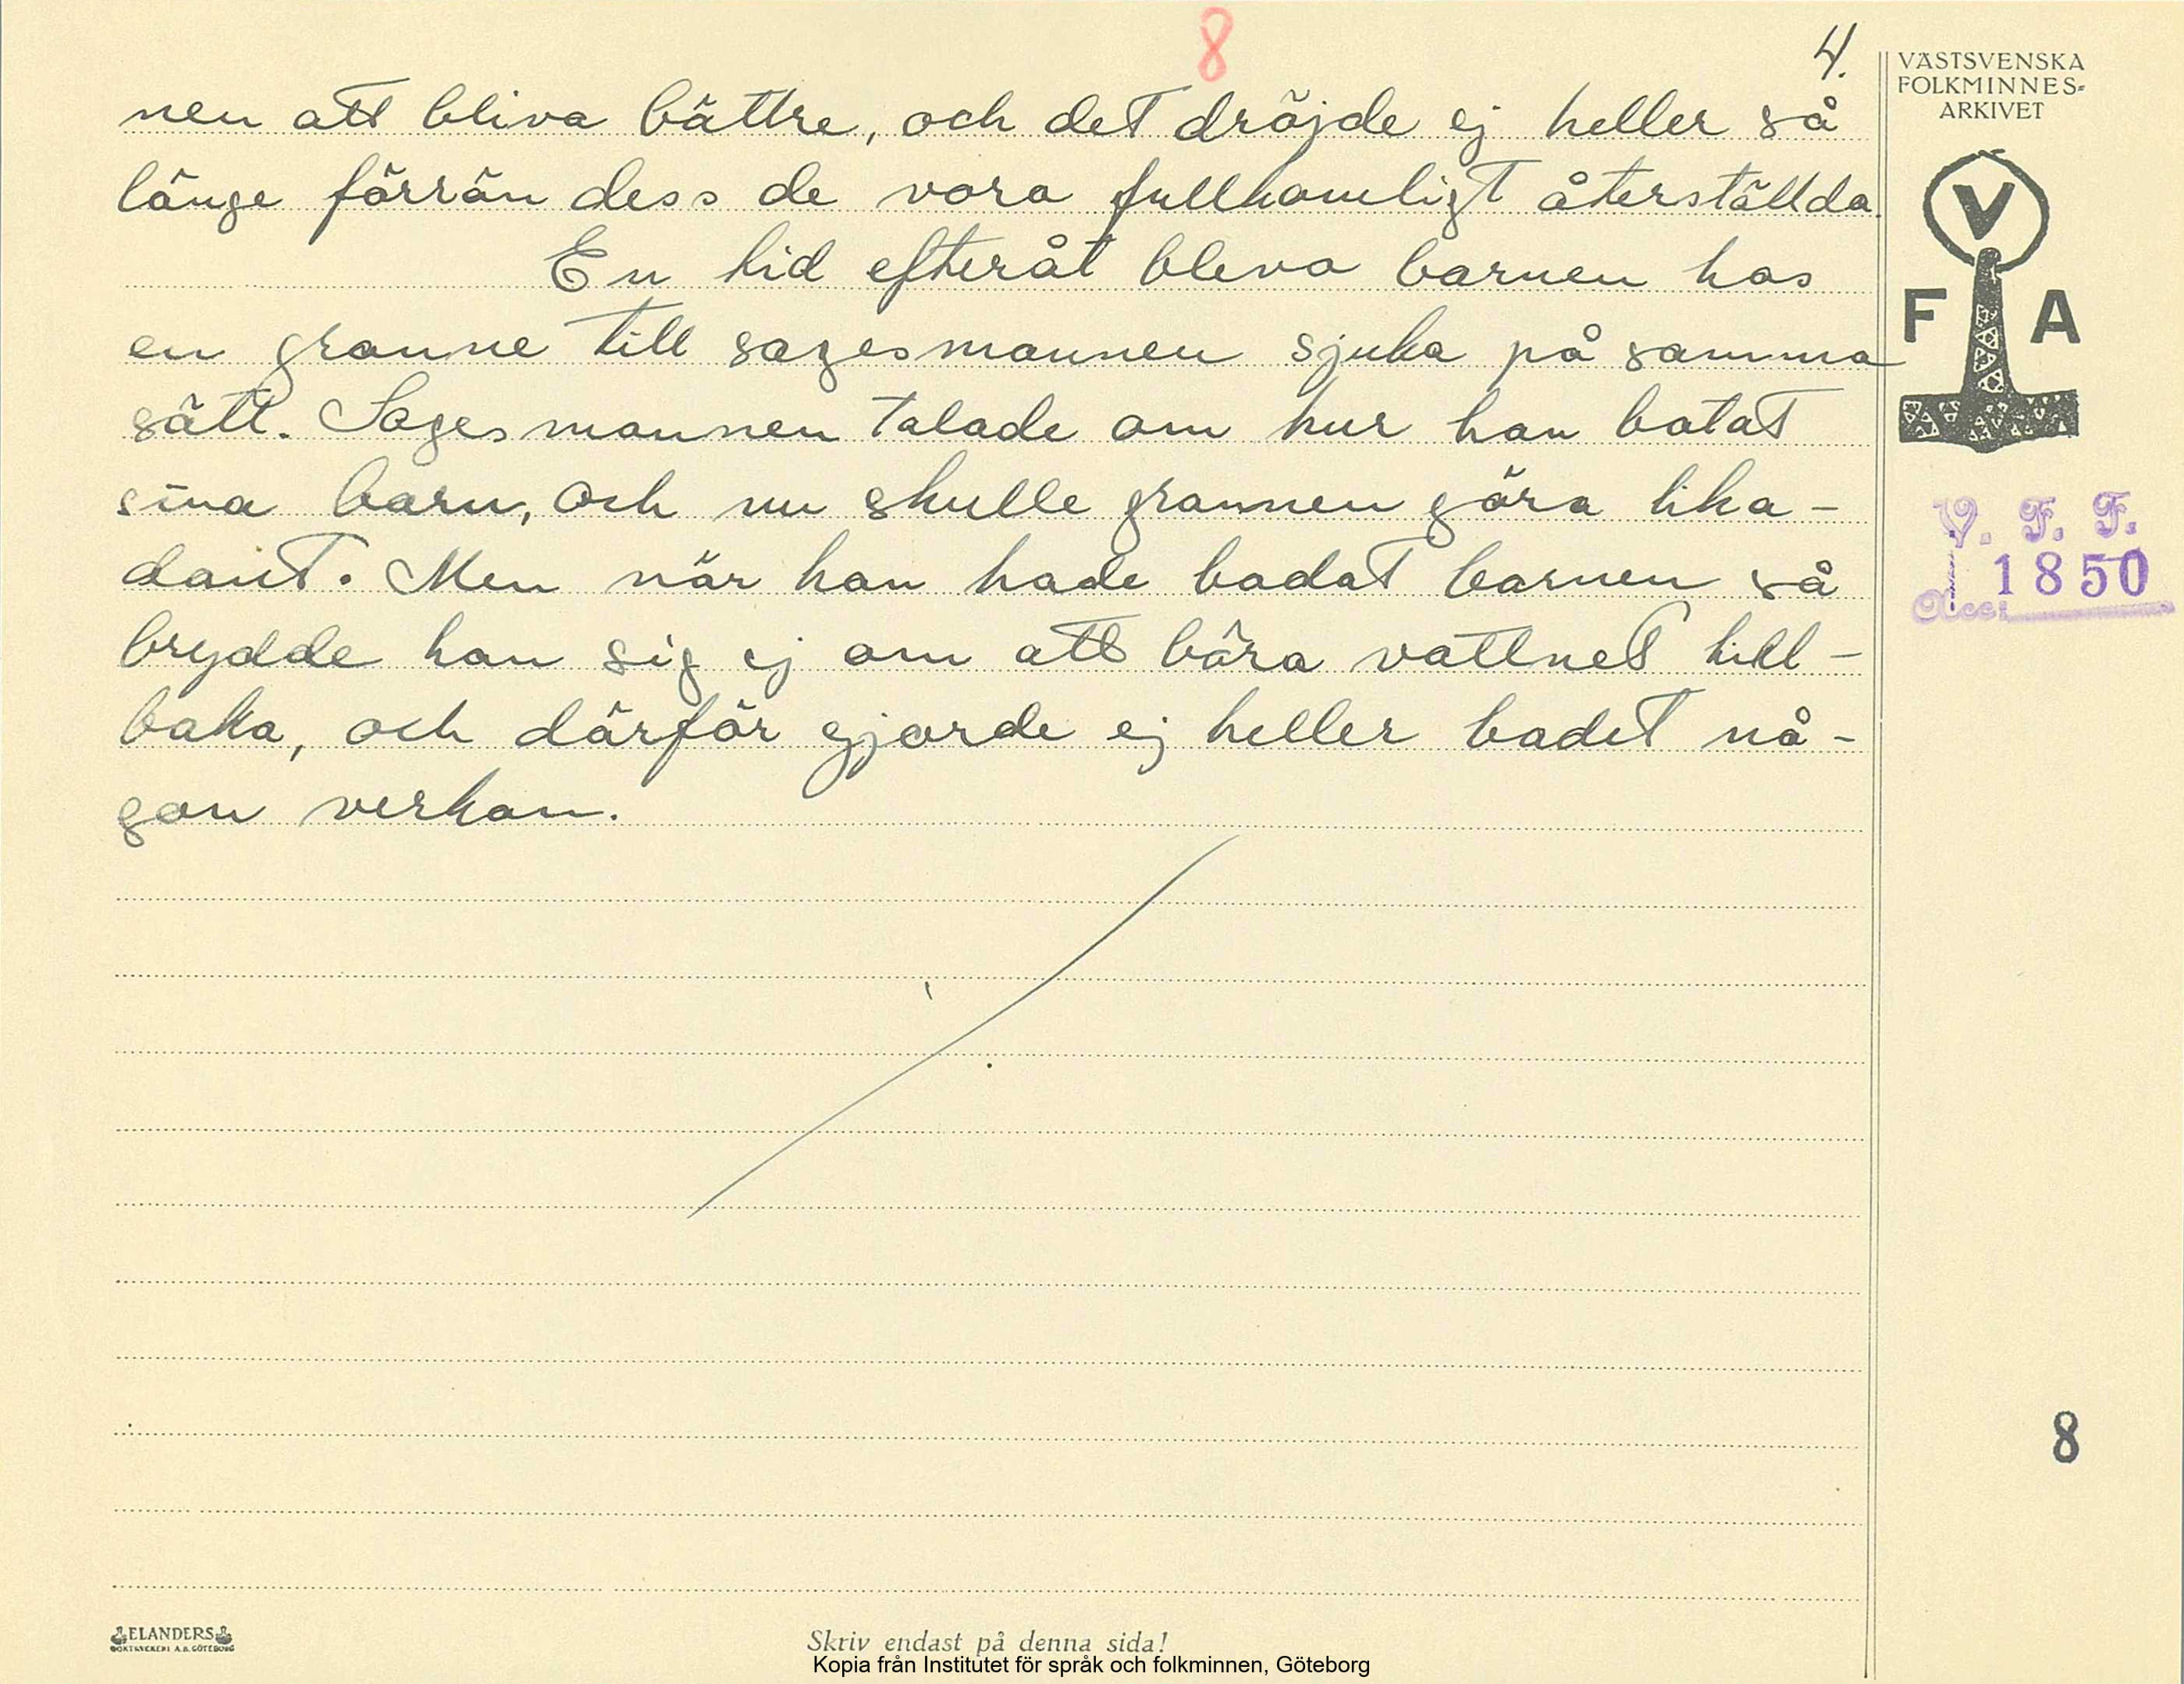 8
4.
nen att bliva bättre, och det dröjde ej heller så
länge förrän dess de vora fullkomligt återställda.
En tid efteråt bleva barnen hos
en granne till sagesmannen sjuka på samma
sätt. Sagesmannen talade om hur han botat
sina barn, och nu skulle grannen göra lika-
dant. Men när han hade badat barnen så
brydde han sig ej om att bära vattnet till-
baka, och därför gjorde ej heller badet nå-
gon verkan.
VÄSTSVENSKA
FOLKMINNES-
ARKIVET
V
F A
V. F. F.
1850
Acc:
8
ELANDERS
BOKTRYCKERI A.B. GÖTEBORG
Skriv endast på denna sida!
Kopia från Institutet för språk och folkminnen, Göteborg